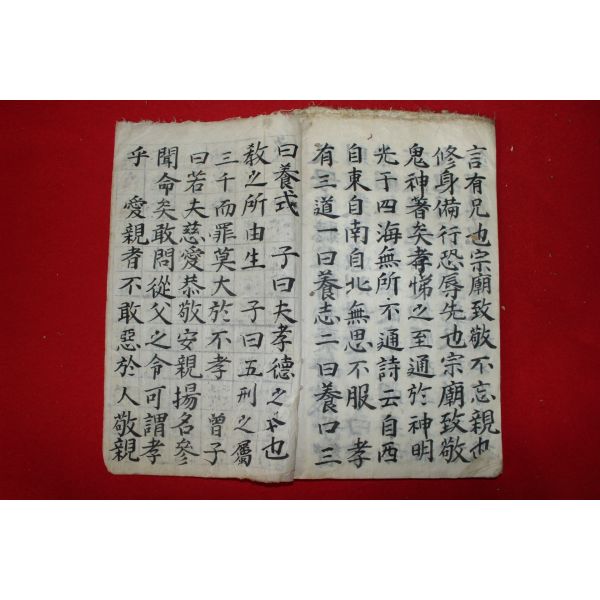 言有兄也宗廟致敬不忘親也
修身備行恐辱先也宗廟致敬
鬼神著矣孝悌之至通於神明
光于四海無所不通詩云自西
自東自南自北無思不服 孝
有三道一曰養志二曰養口三
曰養式 子曰夫孝德之本也
教之所由生 子曰五刑之屬
三千而罪莫大於不孝 曾子
曰若夫慈愛恭敬安親揚名參
聞命矣敢問從父之令可謂孝
乎 愛親者不敢惡於人敬親